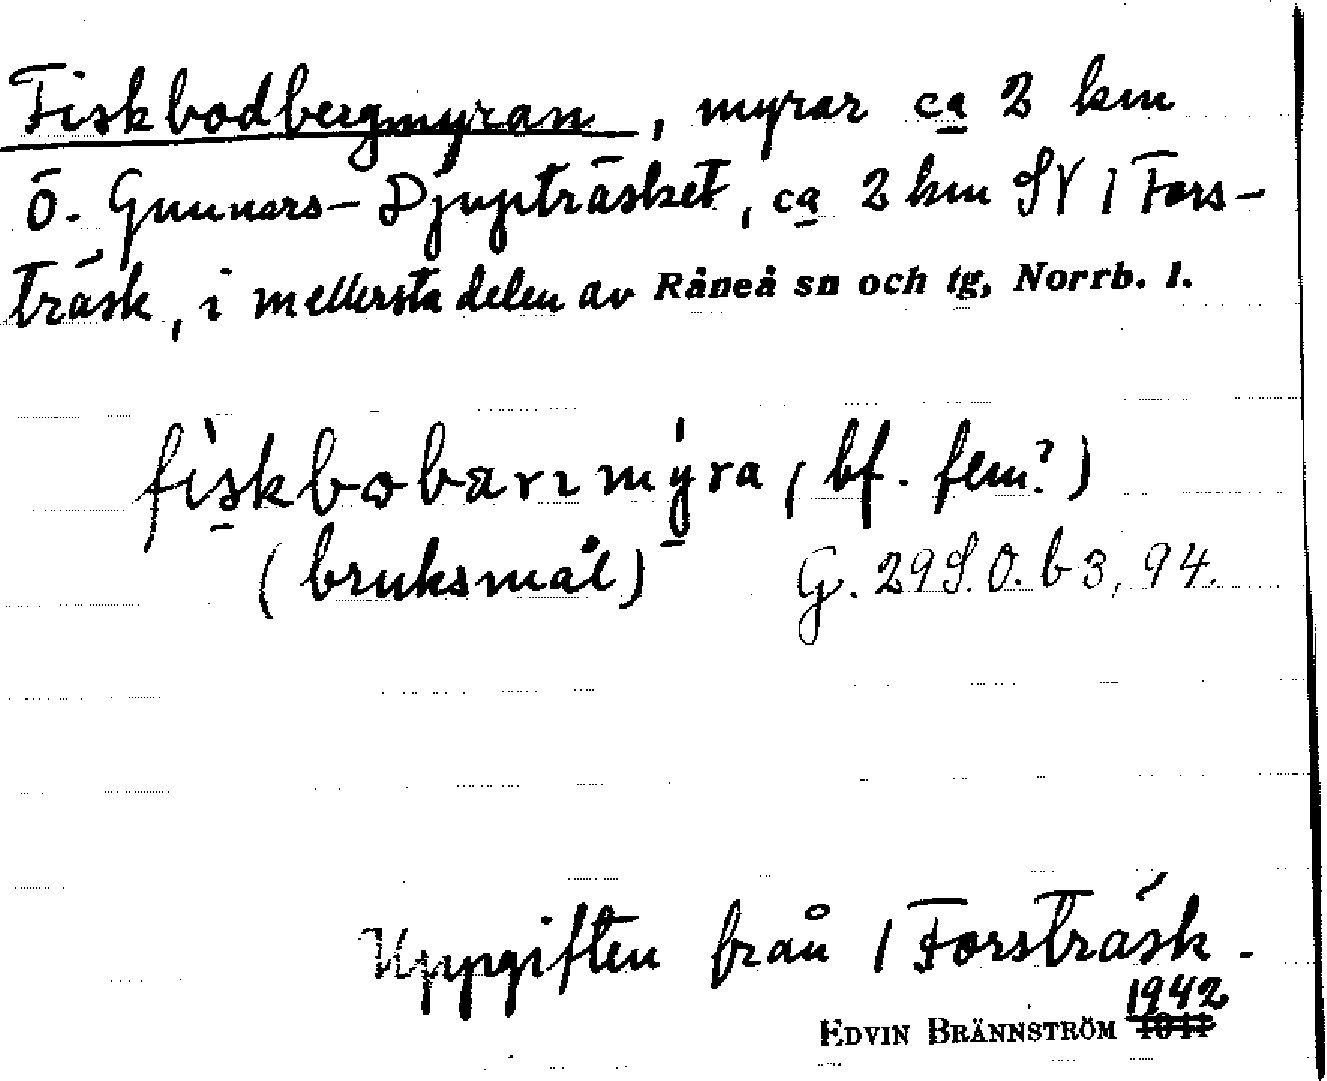 Fiskbodbergmyran, myrar ca 2 km
Ö. Gunnars-Djupträsket, ca 2 km SV / Fors-
träsk, i mellersta delen av Råneå sn och tg, Norrb. l.
fiskbobærımẏra (bf. fem?)
(bruksmål) G. 29 S. O. b 3, 94.
Uppgiften från / Forsträsk.
1942
EDVIN BRÄNNSTRÖM 1941